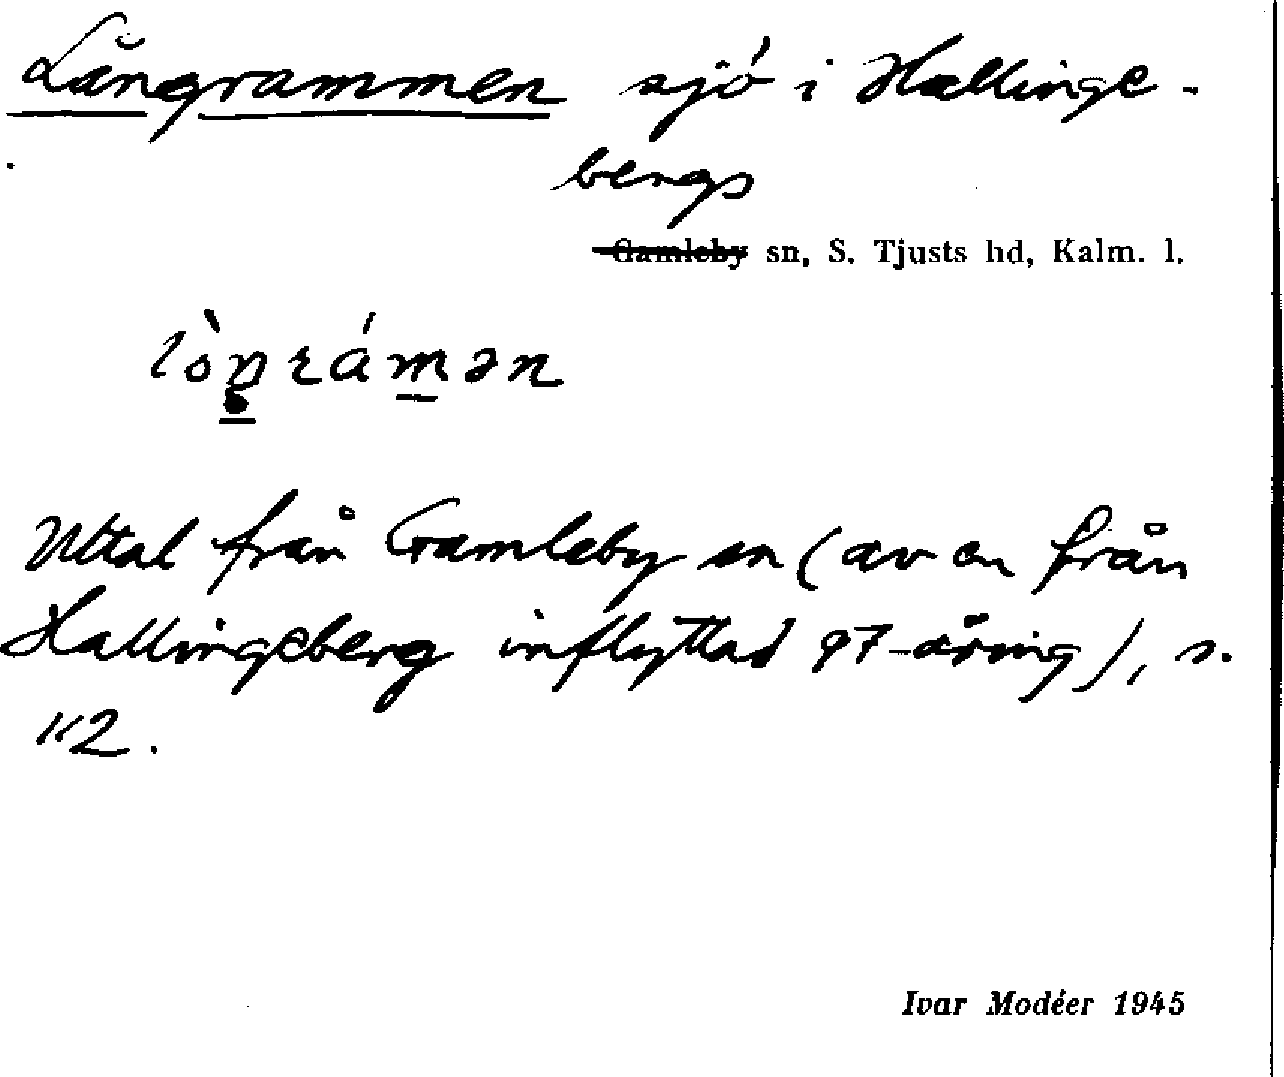 Långrammen sjö i Hallinge-
bergs
Gamleby sn, S. Tjusts hd, Kalm. l.
lòŋrámən
Uttal från Gamleby sn (av en från
Hallingeberg inflyttad 97-åring), s.
112.
Ivar Modéer 1945